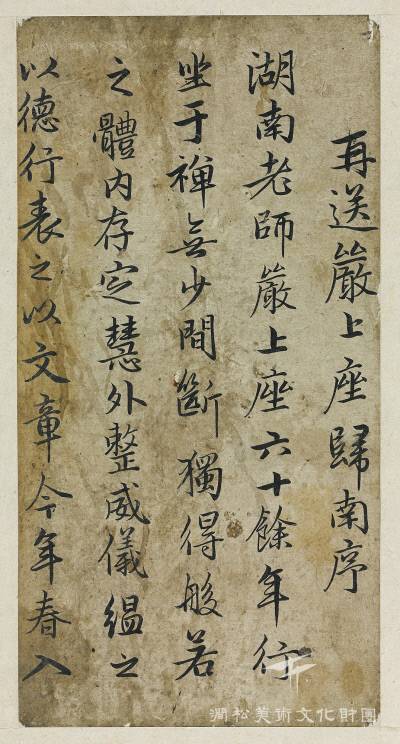 再送巖上座歸南序
湖南老師巖上座六十餘年行
坐于禅無少間斷獨得般若
之體内存定慧外整威儀緼之
以德行表之以文章今年春入
澗松美術文化財團